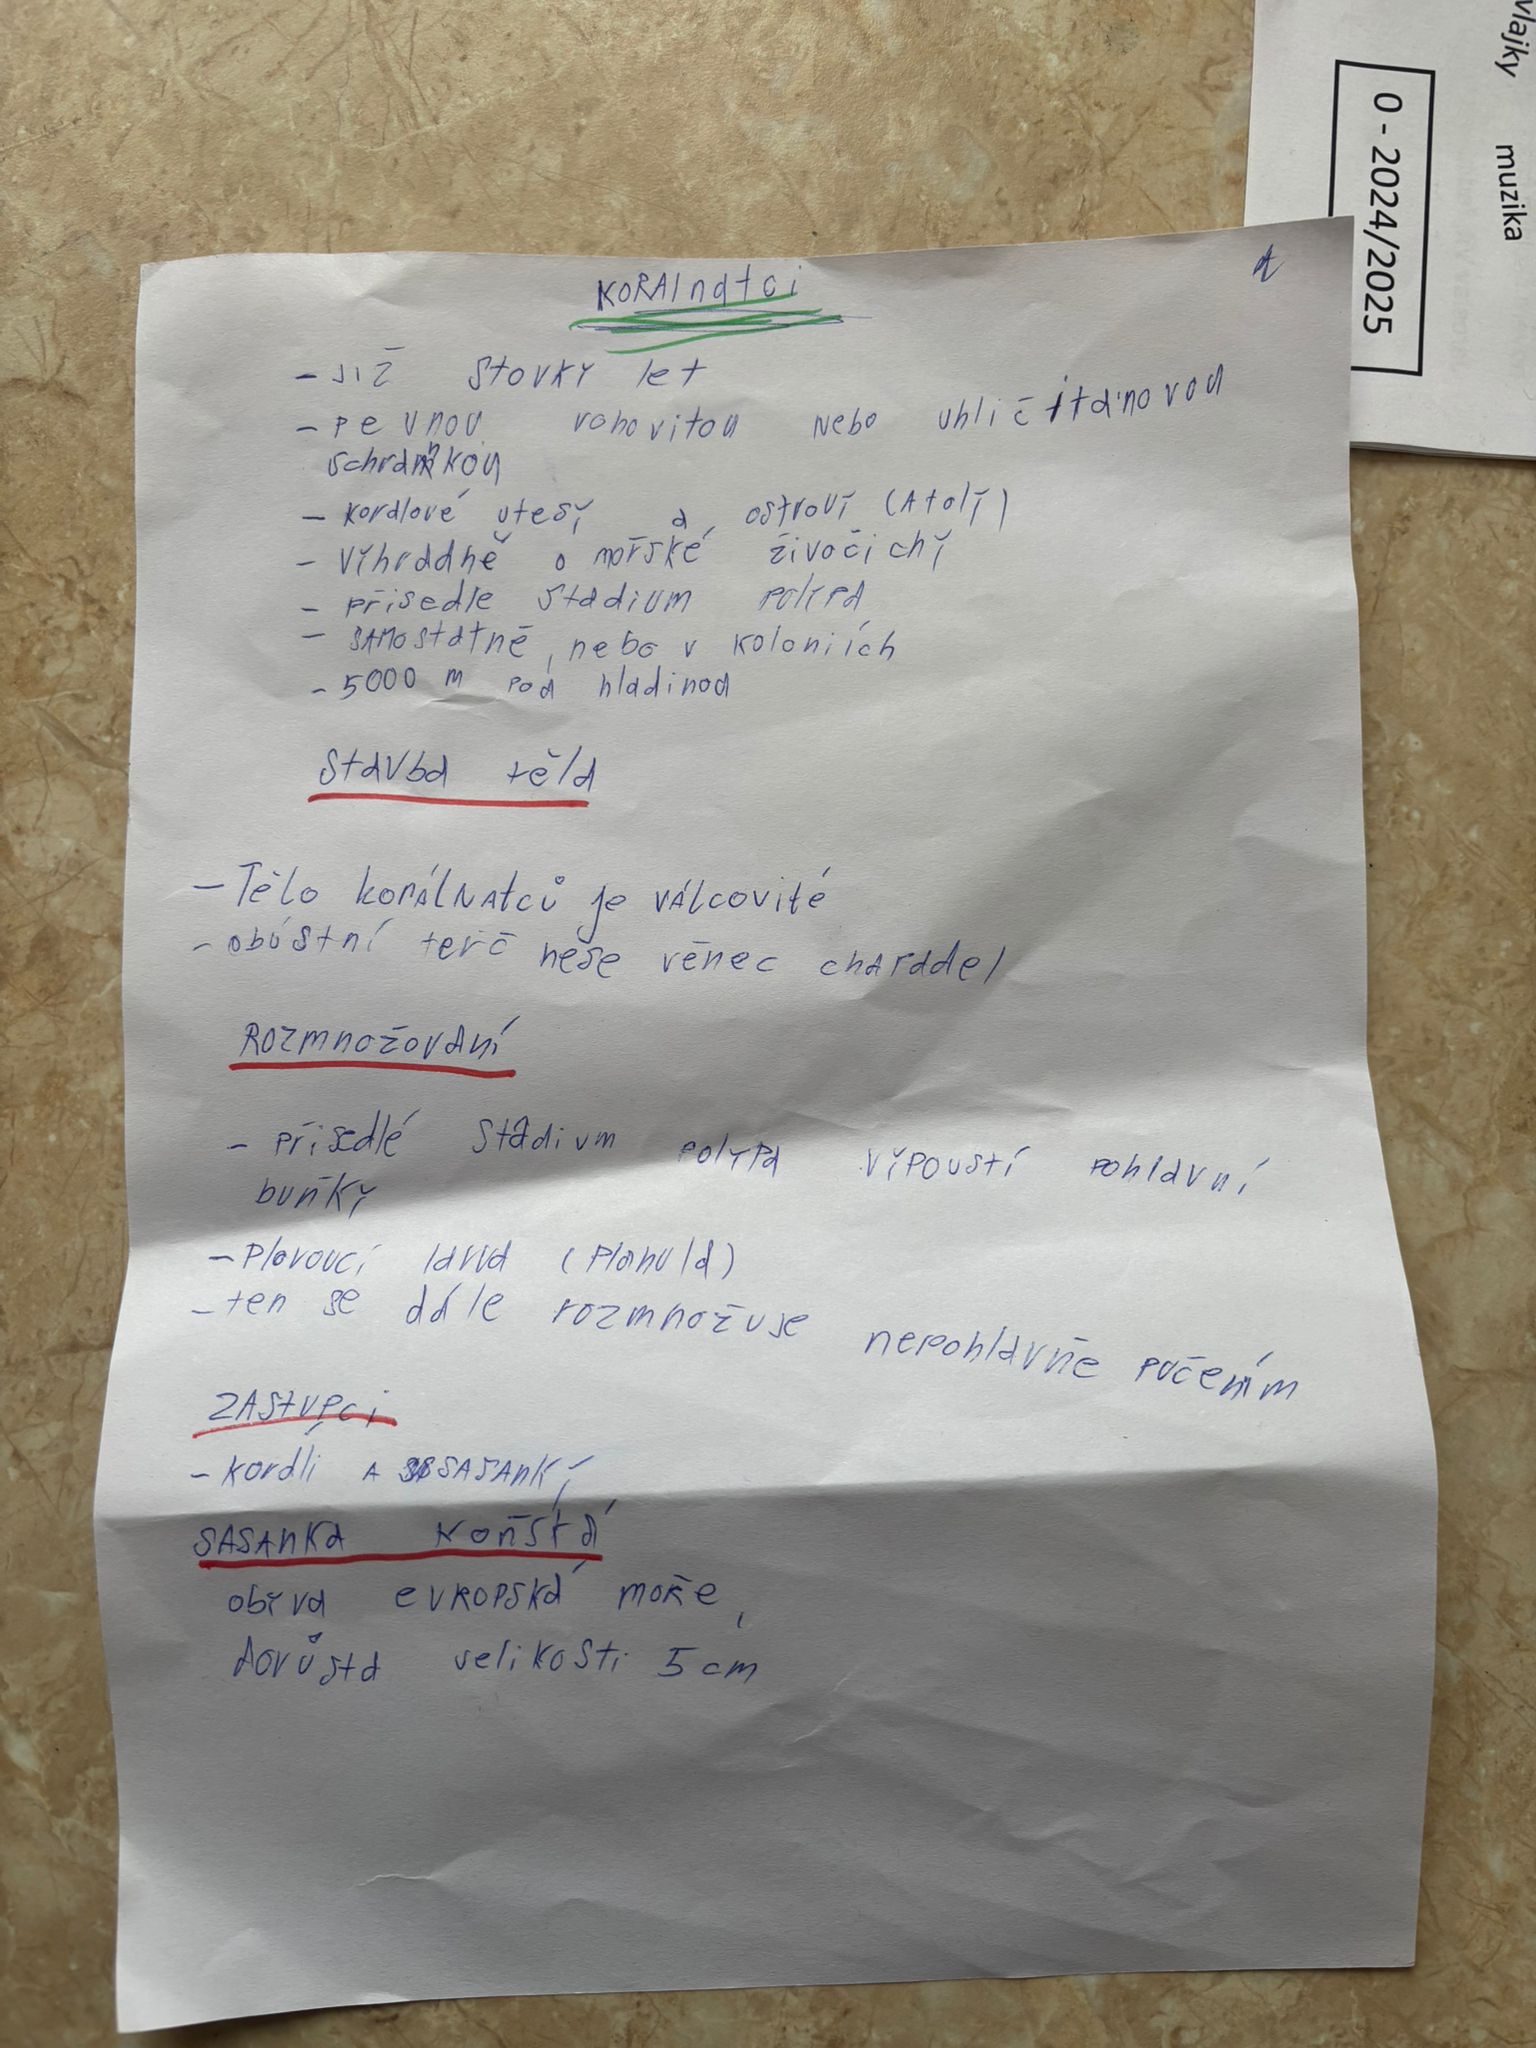 vlajky muzika
0 - 2024/2025
A
KORAlnatci
- již stovky let
- pevnou rohovitou nebo uhličitánovou
schránkou
- korálové utesy a ostroví (Atolý)
- výhradně o mořské živočichý
- přisedle stadium polypa
- SAMostatně, nebo v koloniích
- 5000 m pod hladinou
Stavba těla
- Tělo korálnatců je válcovité
- obústní terč nese věnec chapadel
Rozmnožování
- přisedlé stádium polypa výpoustí pohlavní
buňký
- Plovoucí larva (planula)
- ten se dále rozmnožuje nepohlavně pučením
ZAStupci
- koráli A SASAnký
SASANKA KOŇSKÁ
obývá evropská moře,
dorůstá velikosti 5 cm